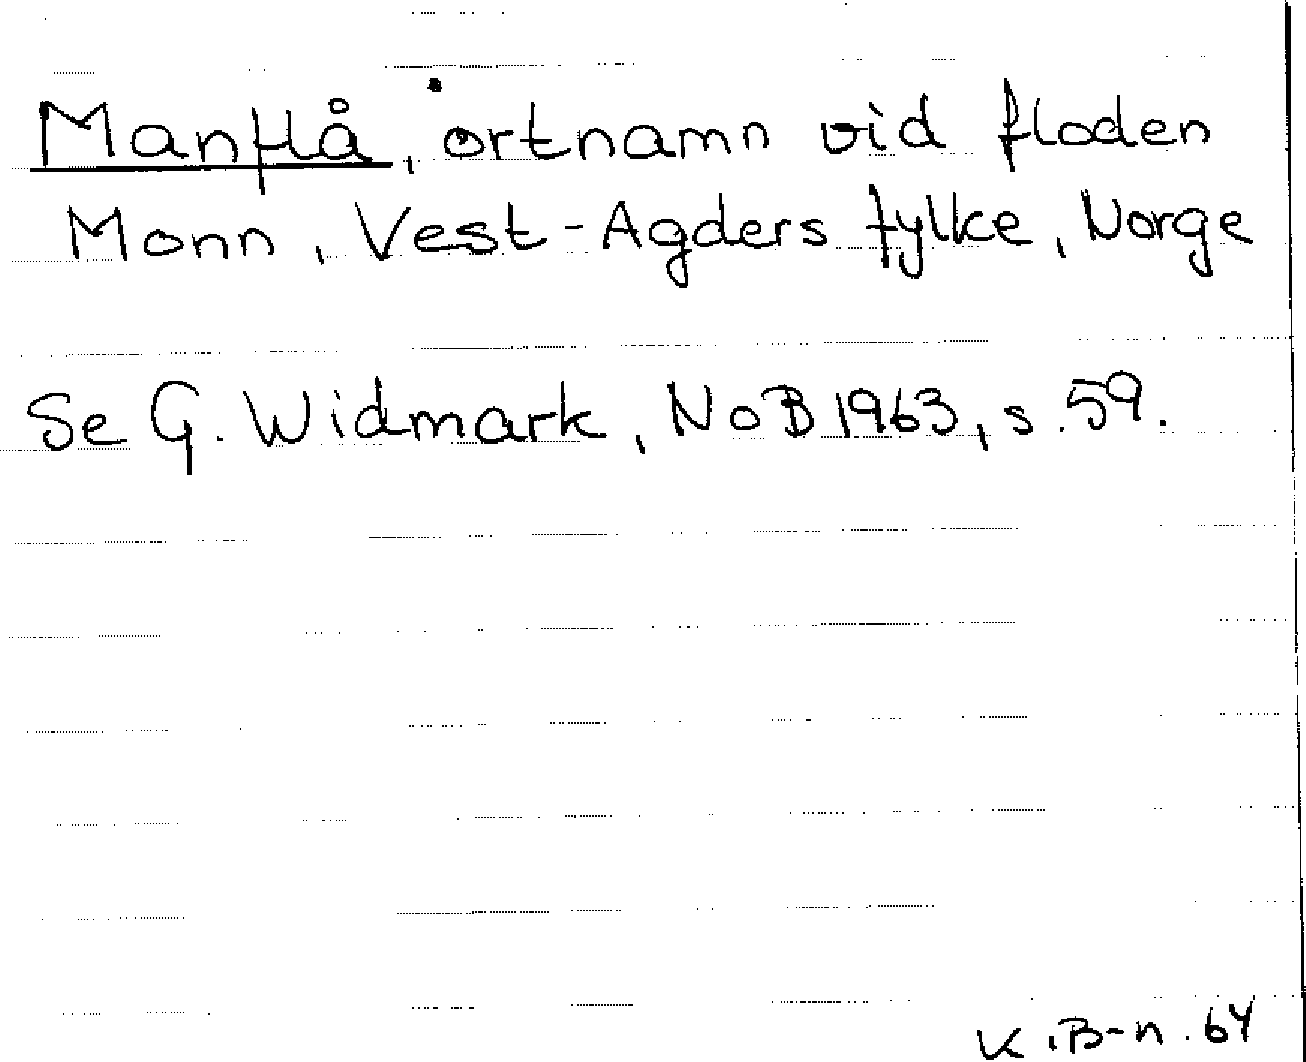 Manflå, ortnamn vid floden
Monn, Vest-Agders fylke, Norge
Se G. Widmark, NoB 1963, s. 59.
K. B-n. 64